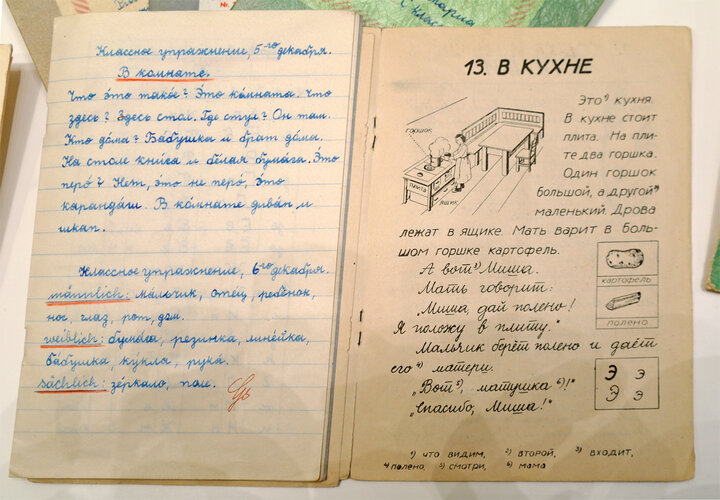 Классное упражнение, 5го декабря.
В комнате.
Что э́то тако́е? Э́то ко́мната. Что
здесь? Здесь стол. Где стул? Он там.
Кто до́ма? Ба́бушка и брат до́ма.
На столе кни́га и бе́лая бума́га. Э́то
перо́? Нет, э́то не перо́, э́то
каранда́ш. В ко́мнате дива́н и
шкап.
Классное упражнение, 6го декабря.
männlich: ма́льчик, оте́ц, ребёнок,
нос, глаз, рот, дом.
weiblich: бума́га, резинка, лине́йка,
ба́бушка, ку́кла, рука́.
sächlich: зе́ркало, поле.
С класс
13. В КУХНЕ
Это¹⁾ кухня.
В кухне стоит
плита. На пли-
те два горшка.
Один горшок
большой, а другой²⁾
маленький. Дрова
лежат в ящике. Мать варит в боль-
шом горшке картофель.
горшок
плита
ящик
А вот³⁾ Миша.
Мать говорит:
„Миша, дай полено!
Я положу в плиту."
Мальчик берёт полено и даёт
его⁴⁾ матери.
„Вот⁵⁾, матушка⁶⁾!"
„Спасибо, Миша!"
картофель
полено
Э э
Э э
¹⁾ что видим, ²⁾ второй, ³⁾ входит,
⁴⁾ полено, ⁵⁾ смотри, ⁶⁾ мама